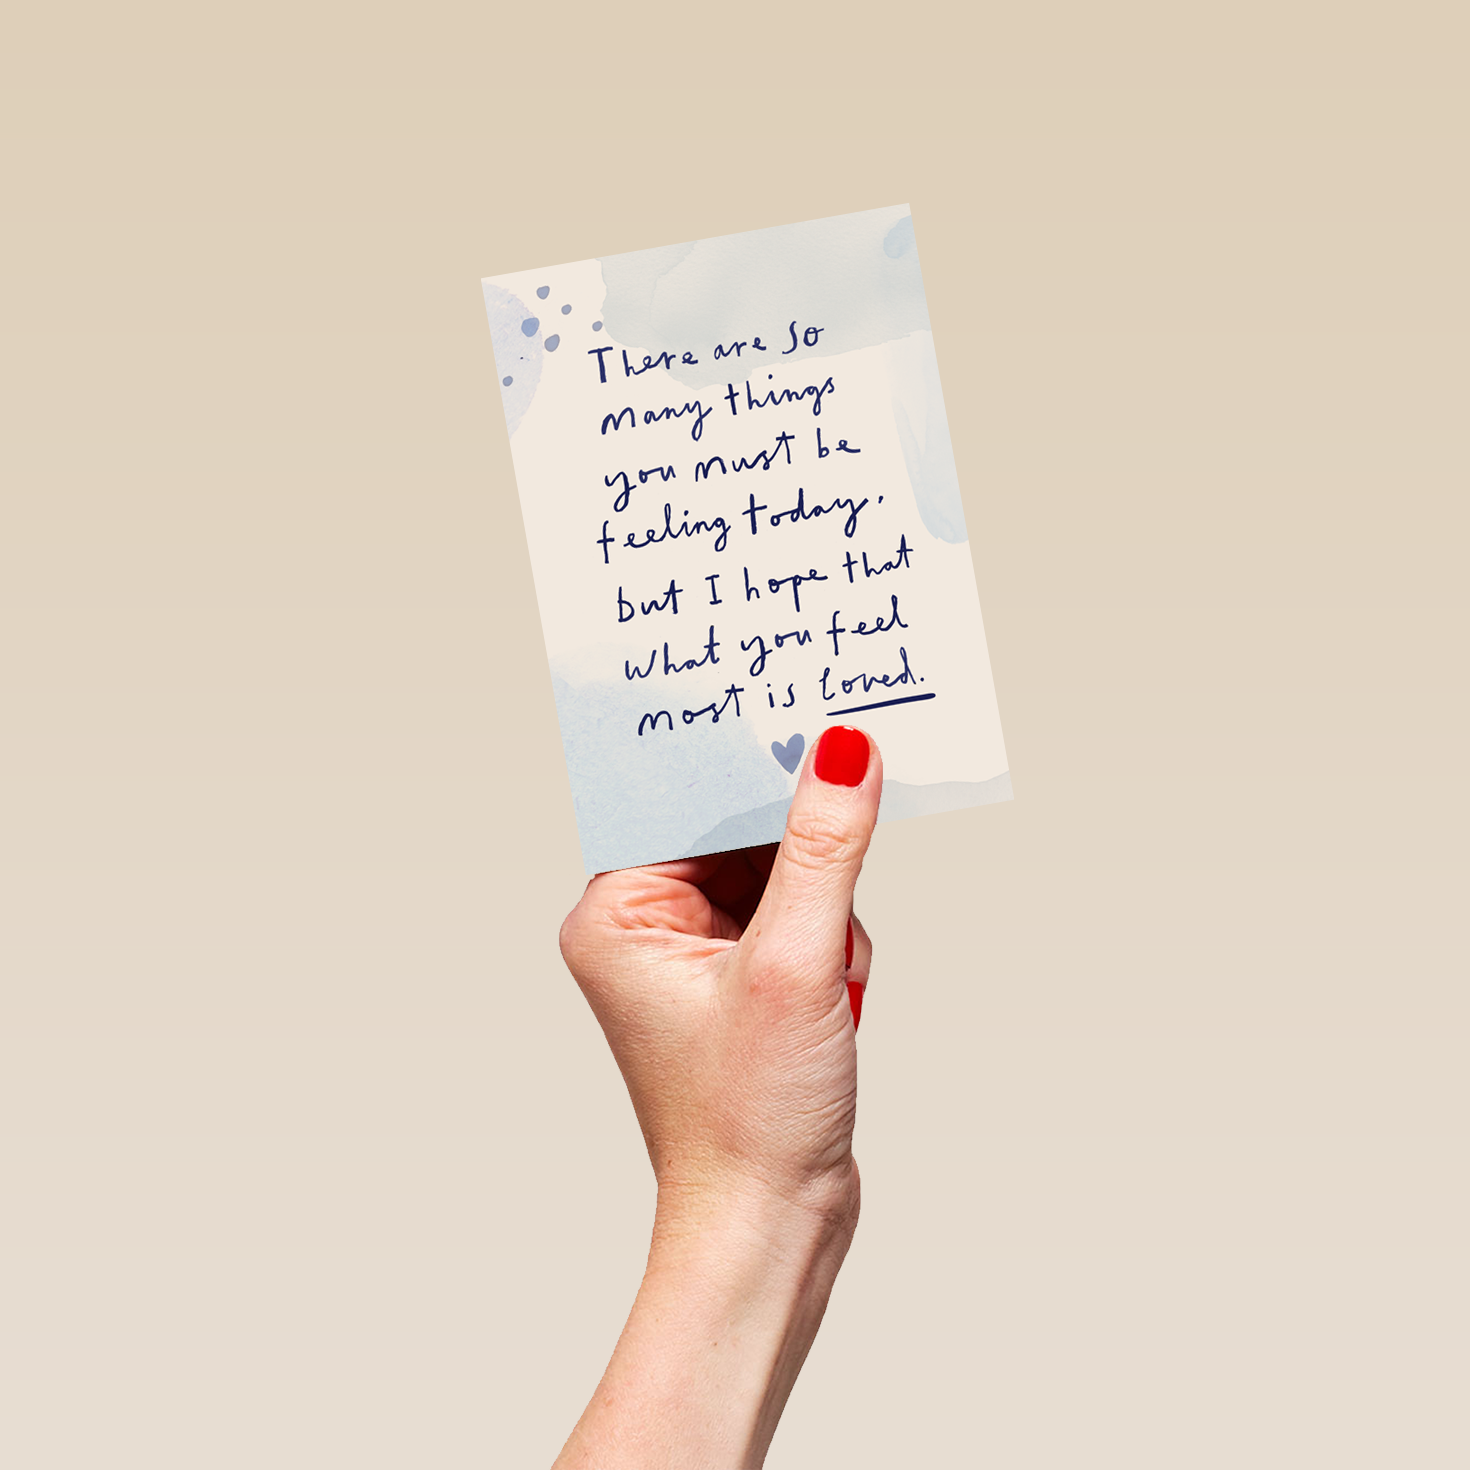 There are so
many things
you must be
feeling today,
but I hope that
what you feel
most is loved.